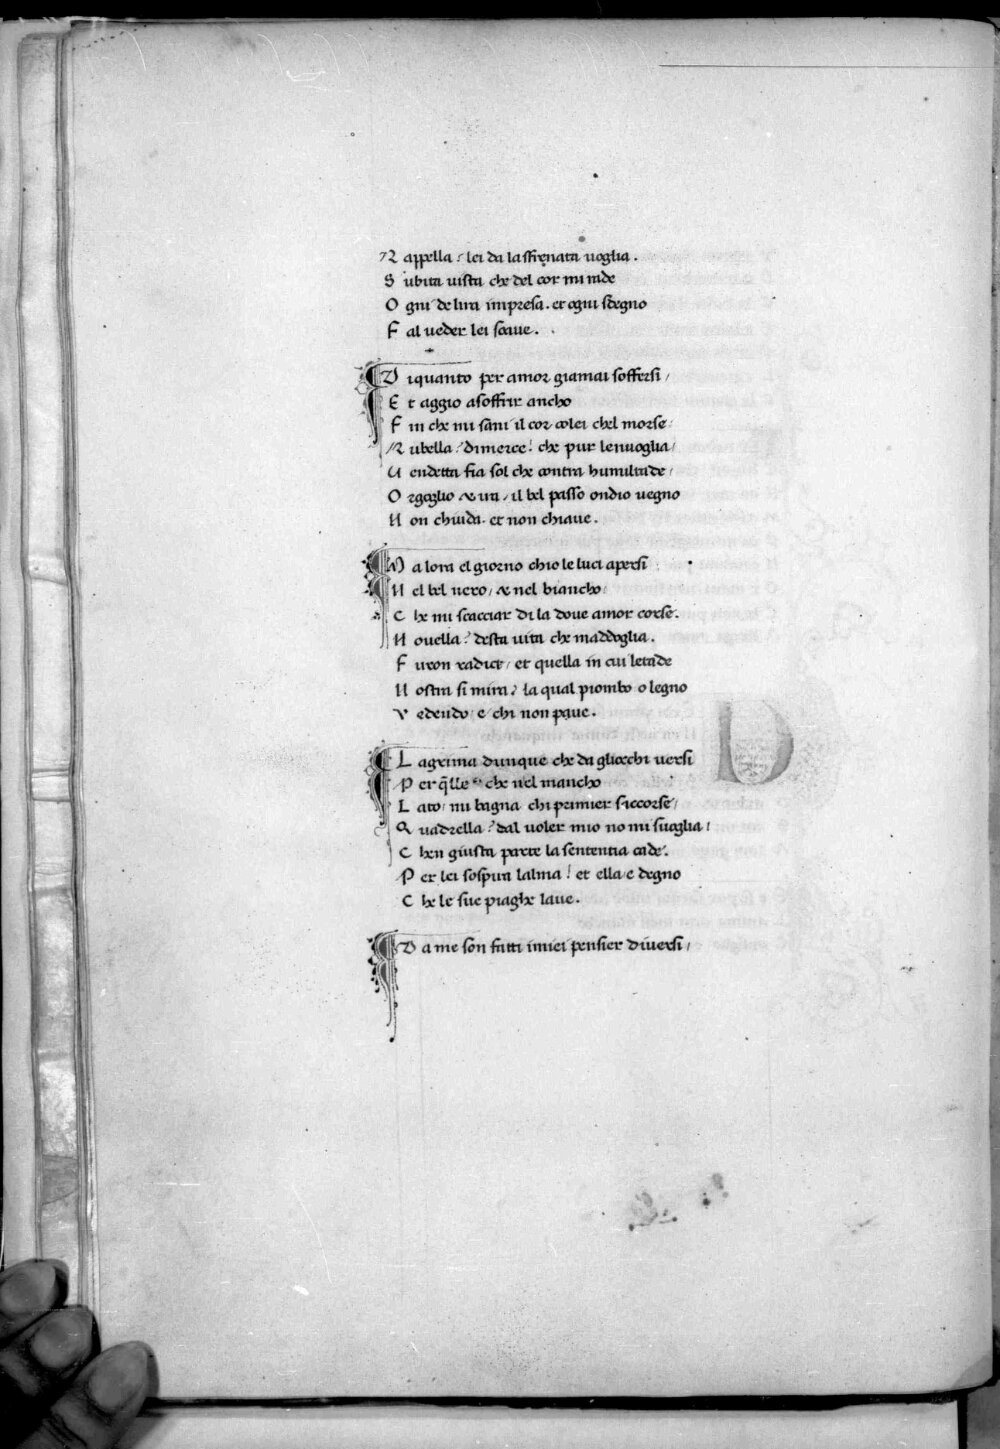 R appella / lei da la sfrenata uoglia .
S ubita uista che del cor mi rade
O gni delira impresa . et ogni sdegno
F al ueder lei soaue .
D iquanto per amor giamai soffersi /
E t aggio asoffrir ancho
F in che mi sani il cor colei chel morse /
R ubella / dimerce / che pur lenuoglia /
U endetta fia sol che contra humiltade /
O rgoglio & ira / il bel passo ondio uegno
N on chiuda . et non chiaue .
M a lora el giorno chio le luci apersi
N el bel nero / & nel biancho /
C he mi scacciar di la doue amor corse .
N ouella / desta uita che maddoglia .
F uron radice / et quella in cui letade
N ostra si mira / la qual piombo o legno
V edendo e chi non paue .
L agrima dunque che da gliocchi uersi
P er q̃lle che nel mancho
L ato / mi bagna chi primier saccorse /
Q uadrella / dal uoler mio no mi suoglia /
C hen giusta parte la sententia cade /
P er lei sospira lalma / et ella e degno
C he le sue piaghe laue .
D a me son fatti imiei pensier diuersi /